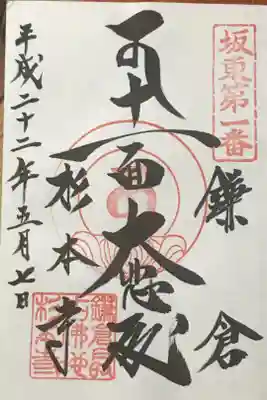 坂東第一番
鎌倉
十一面大悲殿
杉本寺
平成二十二年五月七日